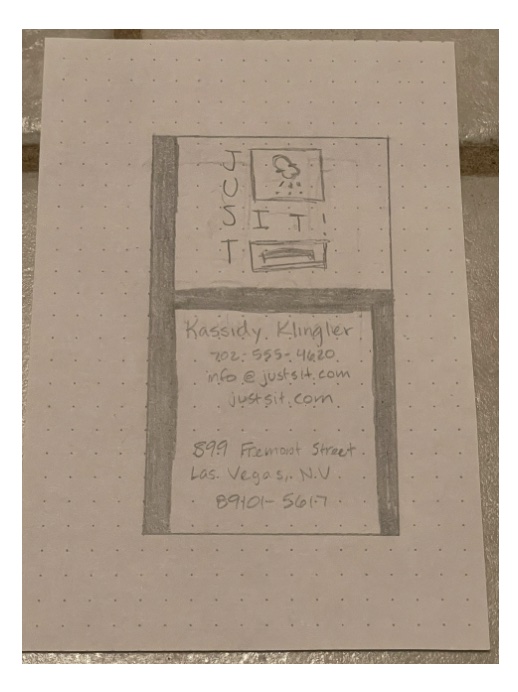 JUST
IT!
Kassidy Klingler
702-555-4620
info@justsit.com
justsit.com
899 Fremont Street
Las. Vegas, N.V.
89101-5617